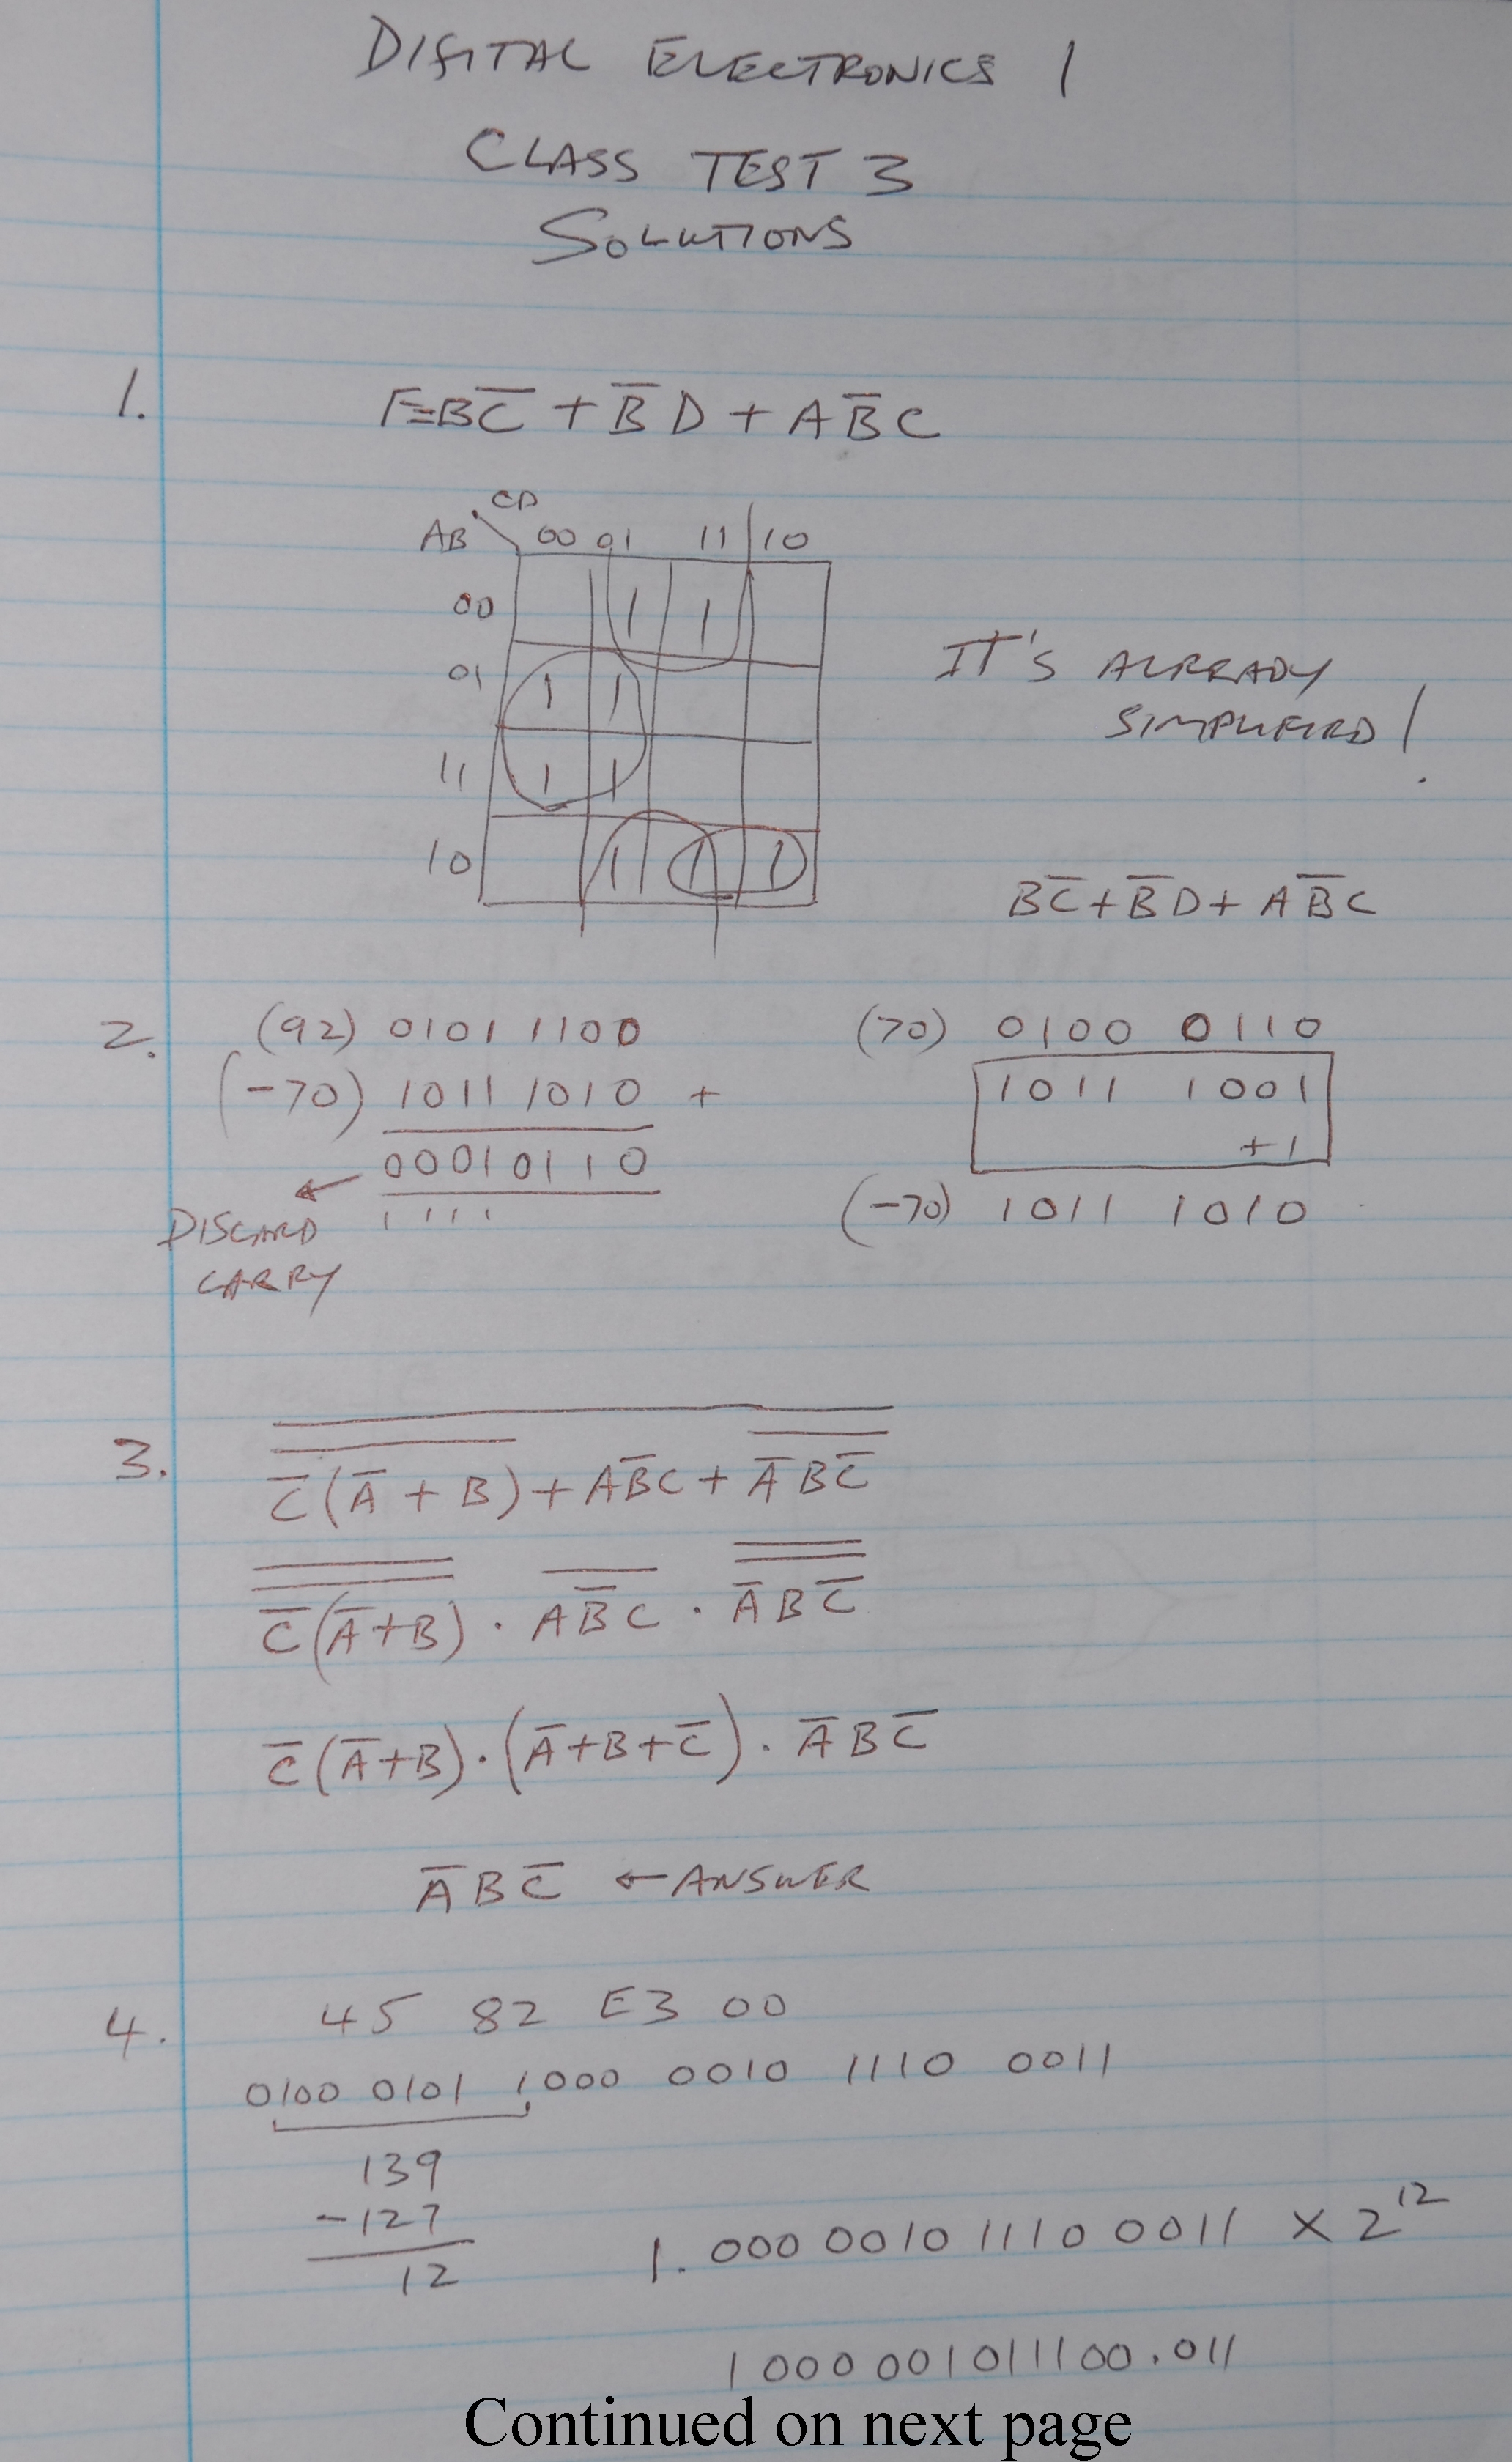 DIGITAL ELECTRONICS 1
CLASS TEST 3
SOLUTIONS
1. F=BC̅ + B̅D + AB̅C
CD
AB 00 01 11 10
00 1 1
01 1 1
11 1 1
10 1 1 1
IT'S ALREADY
SIMPLIFIED!
BC̅ + B̅D + AB̅C
2. (92) 0101 1100
(-70) 1011 1010 +
00010110
1 1 1 1
DISCARD
CARRY
(70) 0100 0110
1011 1001
+1
(-70) 1011 1010
3. C̅(A̅ + B) + AB̅C + A̅BC̅
C̅(A̅+B) . AB̅C . A̅BC̅
C̅(A̅+B).(A̅+B+C̅). A̅BC̅
A̅BC̅ ← ANSWER
4. 45 82 E3 00
0100 0101 1000 0010 1110 0011
139
-127
12
1.000 0010 1110 0011 × 2¹²
1000001011100.011
Continued on next page